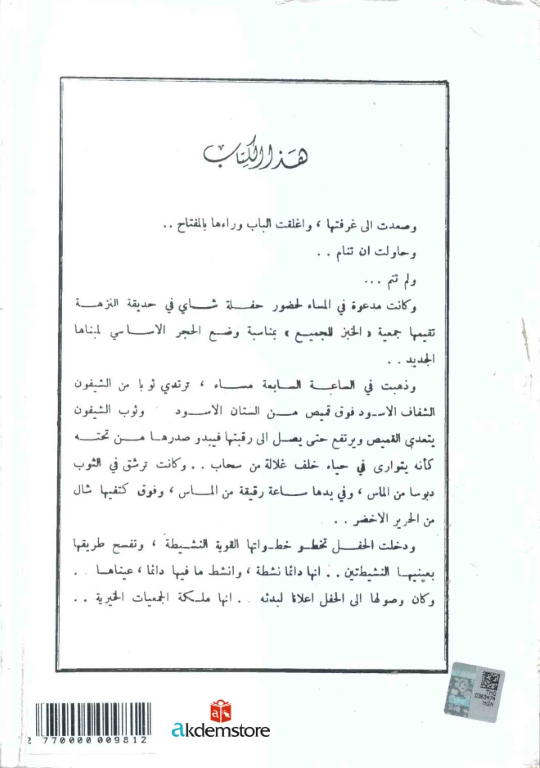 هذا الكتاب
وصعدت الى غرفتها ، واغلقت الباب وراءها بالمفتاح . .
وحاولت ان تنام . .
ولم تنم . . .
وكانت مدعوة في المساء لحضور حفلة شاي في حديقة النزهة
تقيمها جمعية « الخبز للجميع » بمناسبة وضع الحجر الاساسي لمبناها
الجديد . .
وذهبت في الساعة السابعة مساء ، ترتدي ثوبا من الشيفون
الشفاف الاسود فوق قميص من الستان الاسود وثوب الشيفون
يتعدى القميص ويرتفع حتى يصل الى رقبتها فيبدو صدرها من تحته
كأنه يتوارى في حياء خلف غلالة من سحاب . . وكانت ترشق في الثوب
دبوسا من الماس ، وفي يدها ساعة رقيقة من الماس ، وفوق كتفيها شال
من الحرير الاخضر . .
ودخلت الحفل تخطو خطواتها القوية النشيطة ، وتفسح طريقها
بعينيها النشيطتين . . انها دائما نشطة ، وانشط ما فيها دائما ، عيناها . .
وكان وصولها الى الحفل اعلانا لبدئه . . انها ملكة الجمعيات الخيرية . .
2 770000 009812
akdemstore